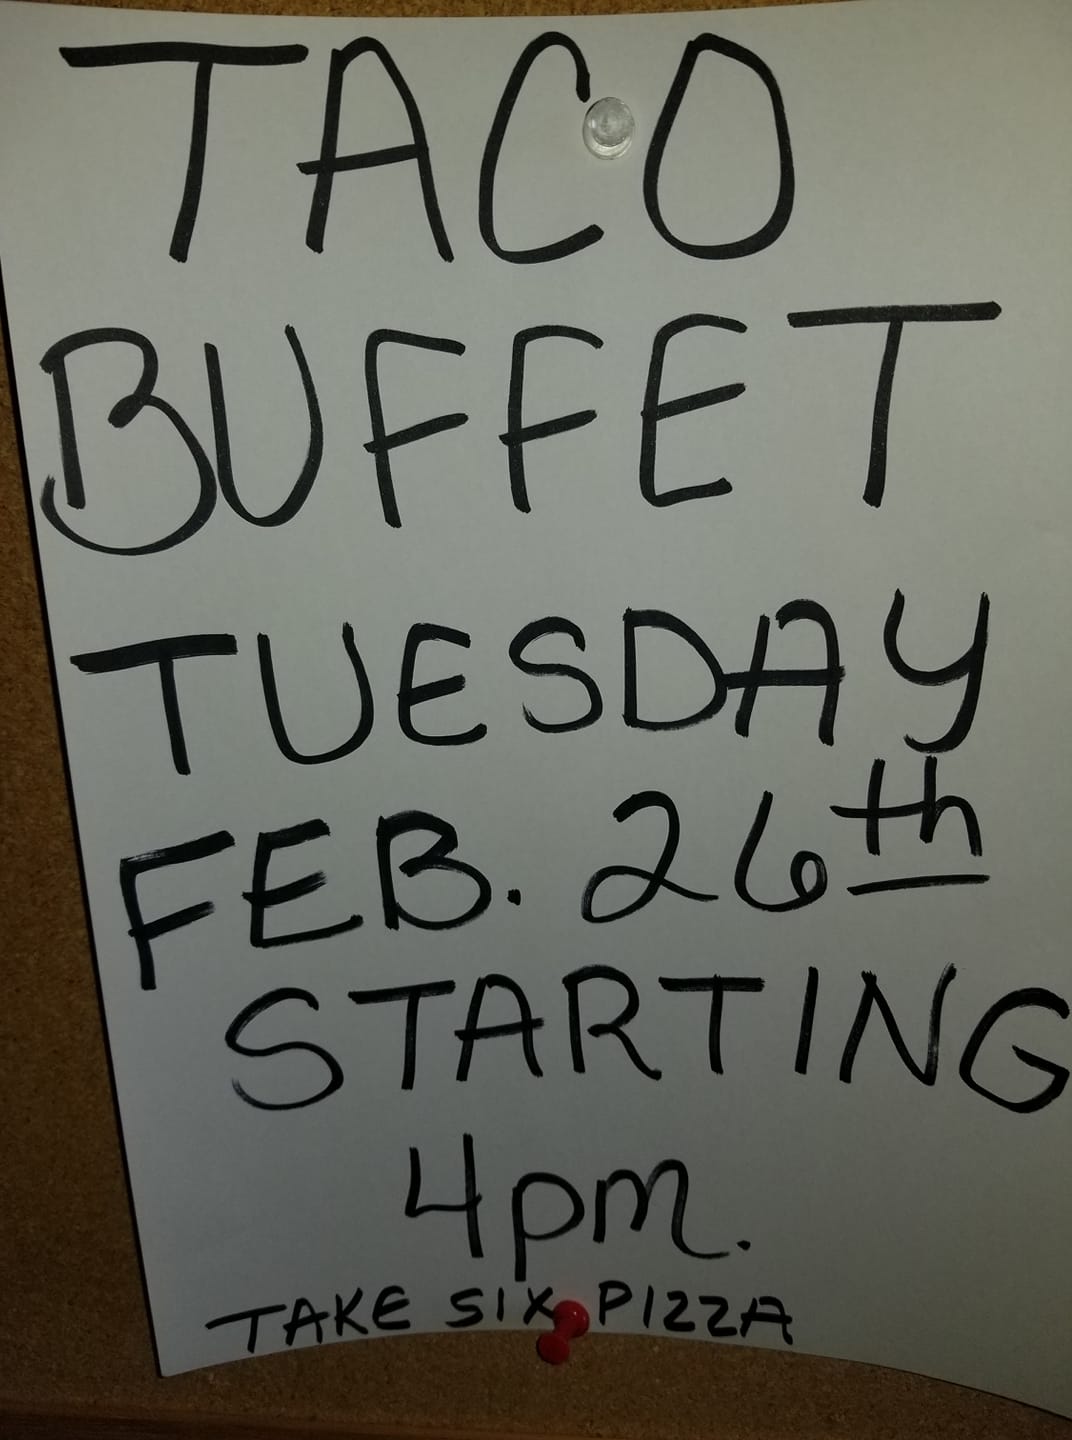 TACO
BUFFET
TUESDAY
FEB. 26th
STARTING
4pm.
TAKE SIX PIZZA